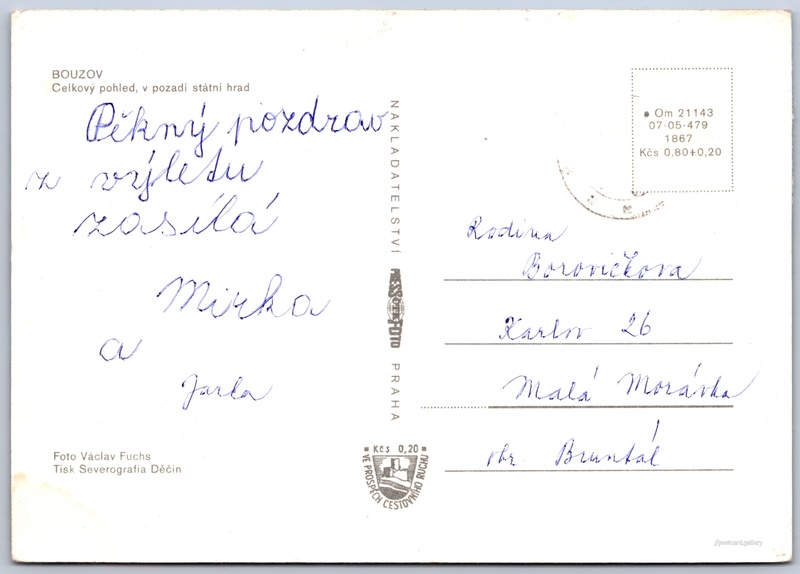 BOUZOV
Celkový pohled, v pozadí státní hrad
Pěkný pozdrav
z výletu
zasílá
Mirka
a
Jarka
Foto Václav Fuchs
Tisk Severografia Děčín
NAKLADATELSTVÍ
PRESSFOTO
PRAHA
Kčs 0,20
VE PROSPĚCH CESTOVNÍHO RUCHU
Om 21143
07-05-479
1867
Kčs 0,80+0,20
Rodina
Borovičkova
Karlov 26
Malá Morávka
okr. Bruntál
@postcard.gallery